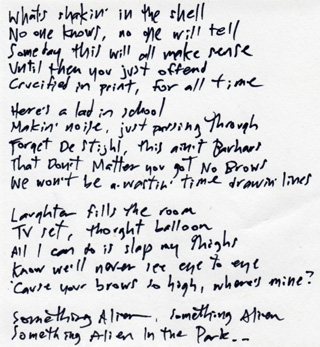 What's shakin' in the shell
No one knows, no one will tell
Someday this will all make sense
Until then you just offend
Crucified in print, for all time
Here's a lad in school
Makin' noise, just passing through
Forget De Stijhl, this ain't Bauhaus
That Don't Matter you got No Brows
We won't be a-wastin' time drawin' lines
Laughter fills the room
TV set, thought balloon
All I can do is slap my thighs
Know we'll never see eye to eye
'Cause your brows so high, where's mine?
Something Alien, Something Alien
Something Alien In the Park...